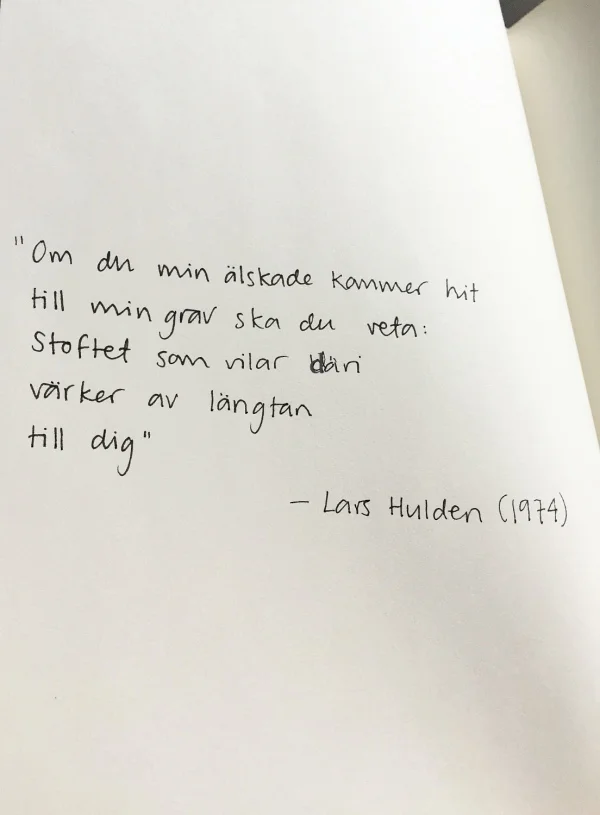 "Om du min älskade kommer hit
till min grav ska du veta:
Stoftet som vilar däri
värker av längtan
till dig"
– Lars Hulden (1974)